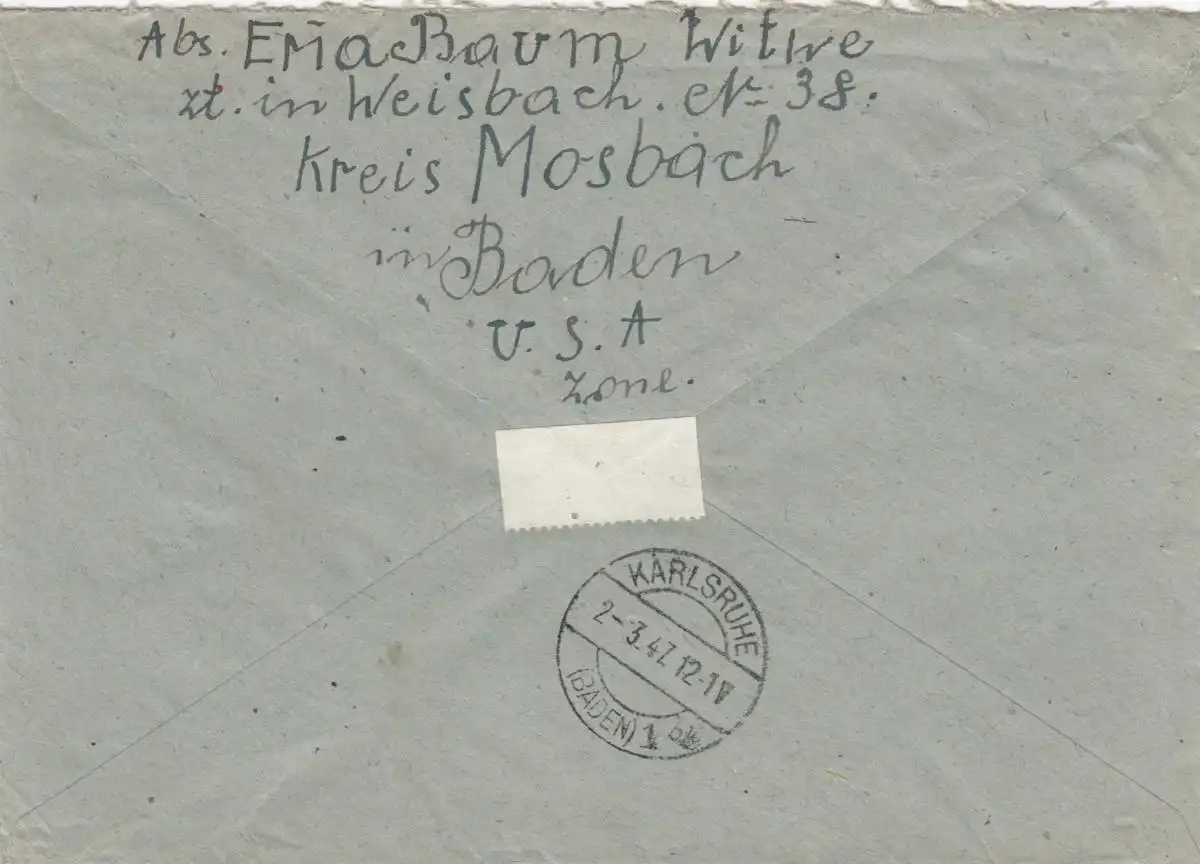 Abs. Erna Baum Witwe
zt. in Weisbach. Nr. 38.
Kreis Mosbach
in Baden
U. S. A
Zone.
KARLSRUHE
2-3.47.12-1
(BADEN) 1